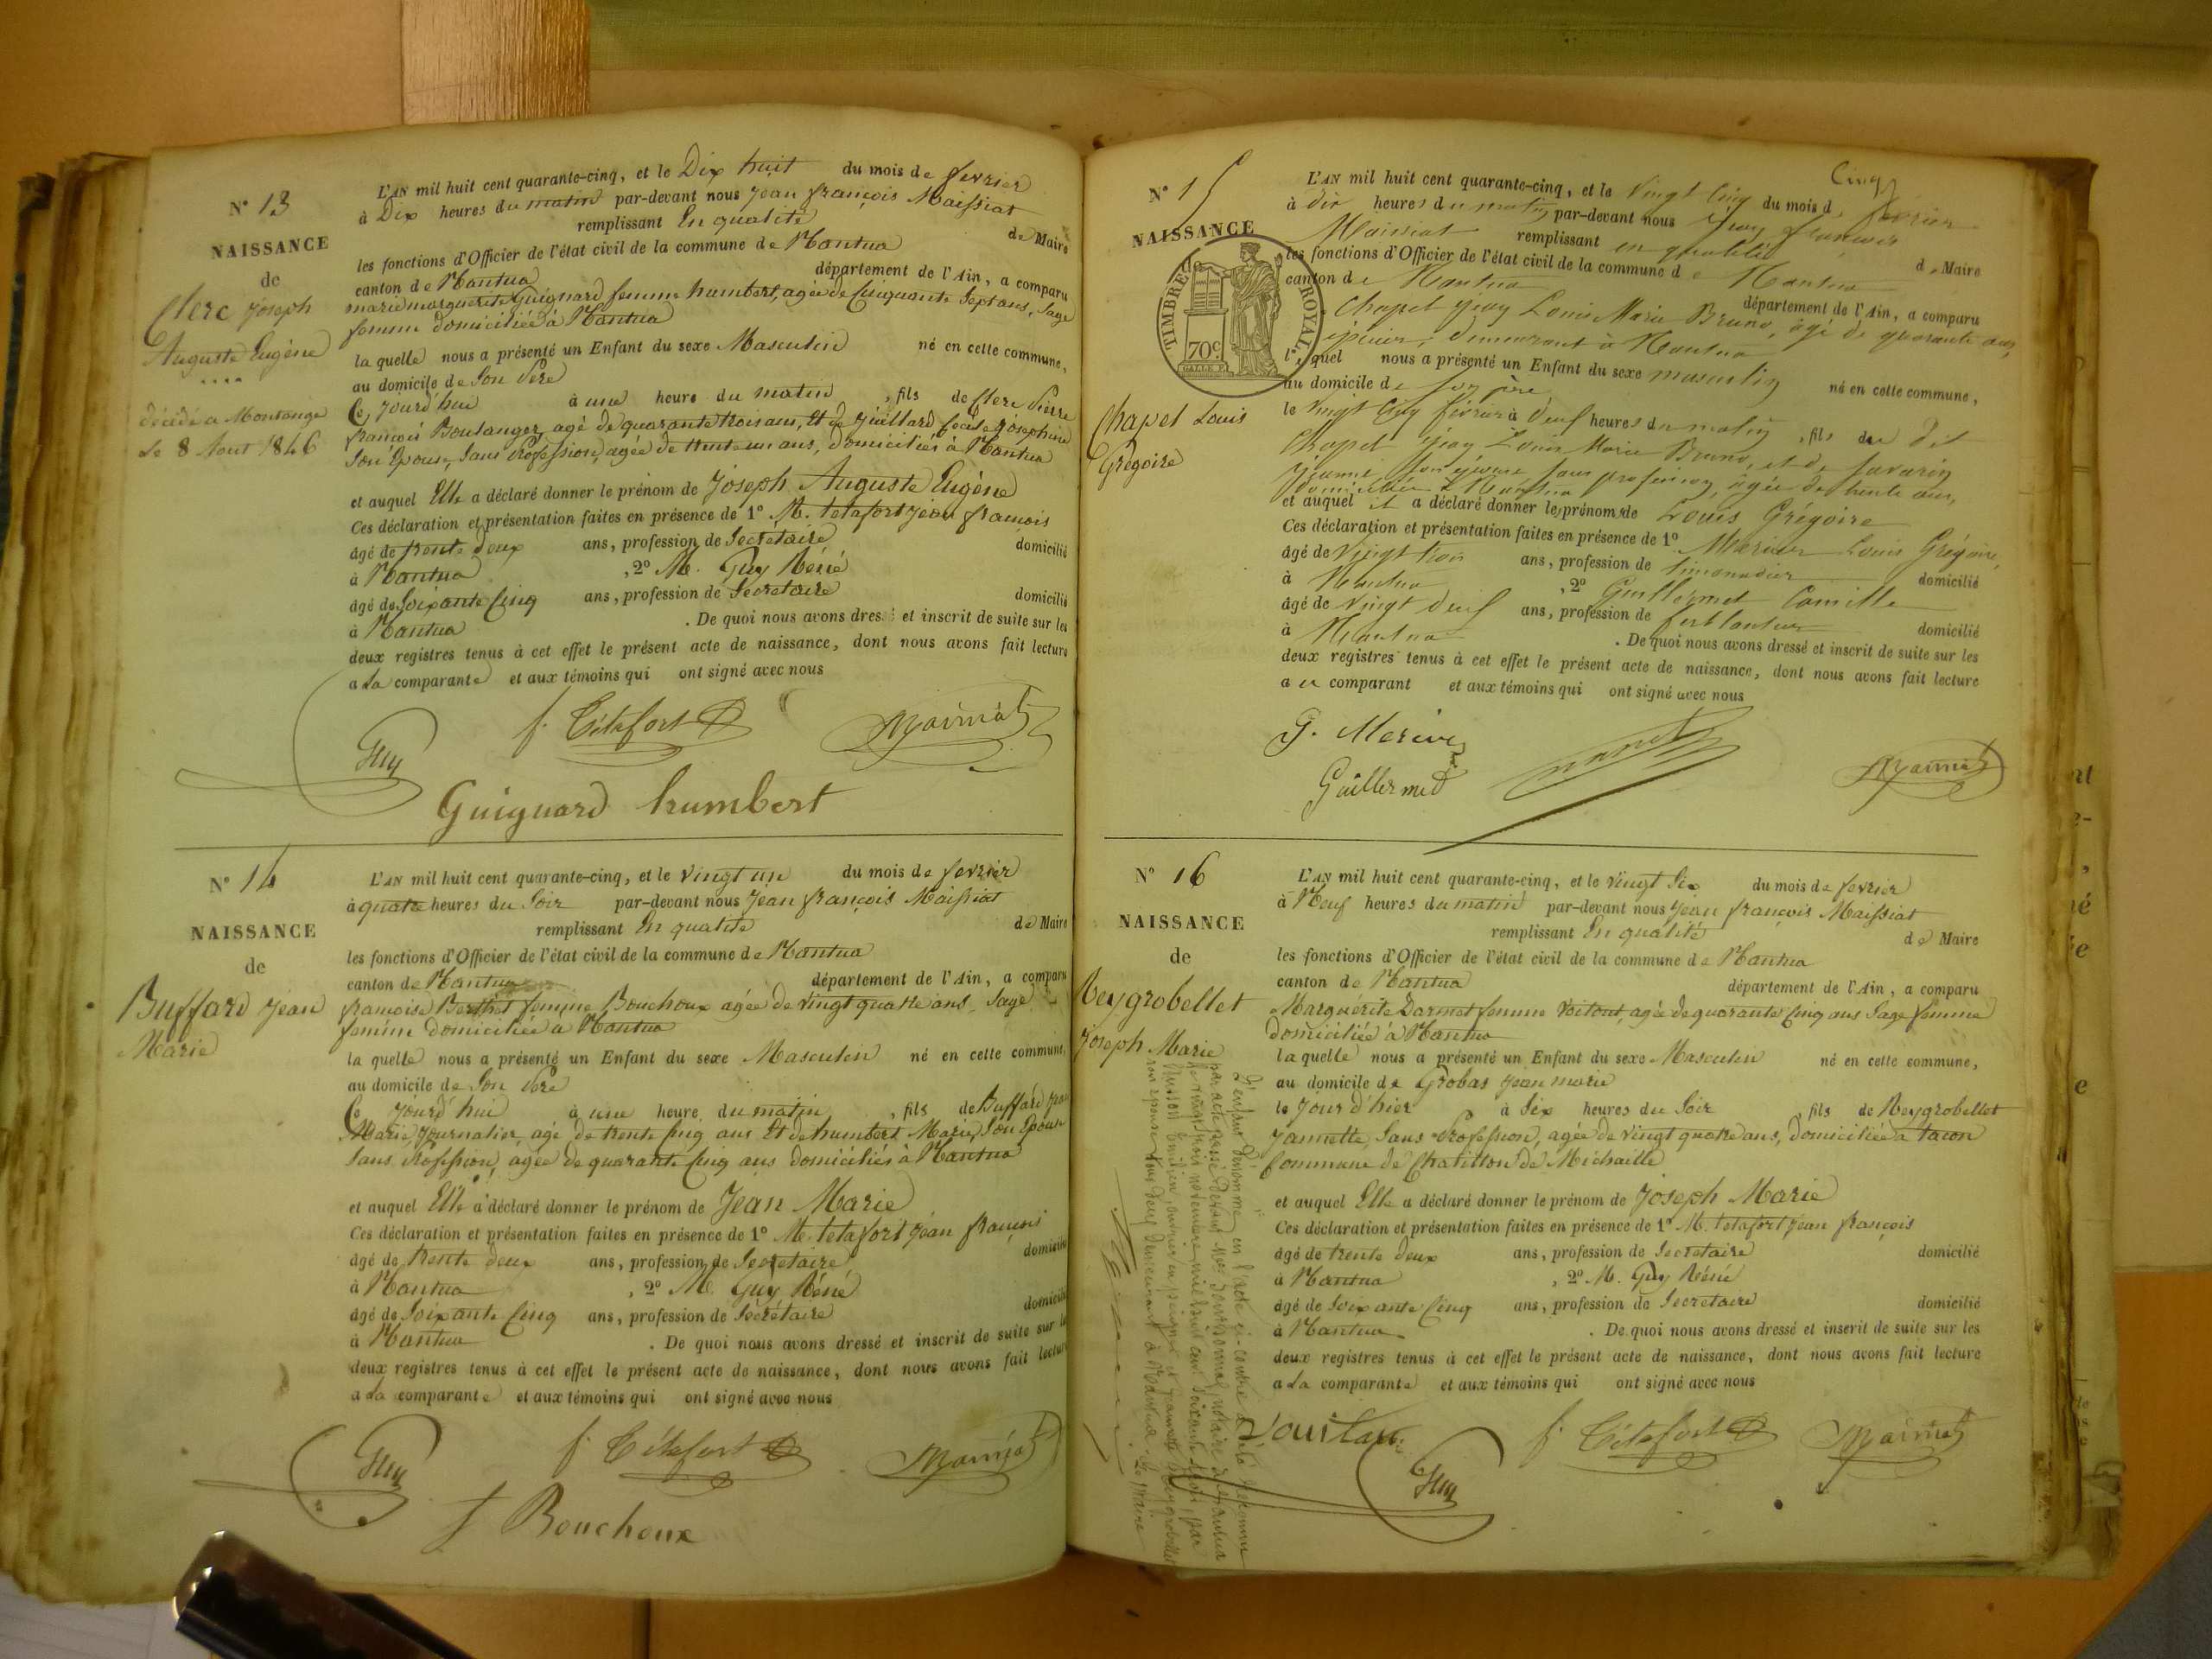 N° 13
NAISSANCE
de
Clerc Joseph
Auguste Eugène
décédé a Montange
Le 8 Aout 1846
L'AN mil huit cent quarante-cinq, et le Dix huit du mois de fevrier
à Dix heures du matin par-devant nous Jean françois Maissiat
remplissant En qualité de Maire
les fonctions d'Officier de l'état civil de la commune de Nantua
canton de Nantua département de l'Ain, a comparu
marie marguerite Guignard femme humbert, agée de Cinquante Sept ans, Sage
femme domiciliée à Nantua
la quelle nous a présenté un Enfant du sexe Masculin né en cette commune,
au domicile de Son Pere
Ce jourd'hui à une heure du matin, fils de Clerc Pierre
françois Boulanger, agé de quarante trois ans, Et de Juillard Josephine
Son Epouse, Sans Profession, agée de trente un ans, domiciliés à Nantua
et auquel Elle a déclaré donner le prénom de Joseph Auguste Eugène
Ces déclaration et présentation faites en présence de 1° M. tetafort Jean françois
âgé de trente deux ans, profession de Secretaire domicilié
à Nantua, 2° M. Guy Réné
âgé de Soixante Cinq ans, profession de Secretaire domicilié
à Nantua. De quoi nous avons dressé et inscrit de suite sur les
deux registres tenus à cet effet le présent acte de naissance, dont nous avons fait lecture
a La comparante et aux témoins qui ont signé avec nous
Guy f. Tétafort Maissiat
Guignard humbert
N° 14
NAISSANCE
de
Buffard Jean
Marie
L'AN mil huit cent quarante-cinq, et le vingt un du mois de fevrier
à quatre heures du Soir par-devant nous Jean françois Maissiat
remplissant En qualité de Maire
les fonctions d'Officier de l'état civil de la commune de Nantua
canton de Nantua département de l'Ain, a comparu
françoise Berthet femme Bouchoux agée de vingt quatre ans, Sage
femme domiciliée a Nantua
la quelle nous a présenté un Enfant du sexe Masculin né en cette commune,
au domicile de Son Pere
Ce jourd'hui à une heure du matin, fils de Buffard Jean
Marie Journalier, agé de trente Cinq ans Et de humbert Marie, Son Epouse
Sans Profession, agée de quarante Cinq ans domiciliés à Nantua
et auquel Elle a déclaré donner le prénom de Jean Marie
Ces déclaration et présentation faites en présence de 1° M. tetafort Jean françois
âgé de trente deux ans, profession de Secretaire domicilié
à Nantua, 2° M. Guy Réné
âgé de Soixante Cinq ans, profession de Sécrétaire domicilié
à Nantua. De quoi nous avons dressé et inscrit de suite sur les
deux registres tenus à cet effet le présent acte de naissance, dont nous avons fait lecture
a La comparante et aux témoins qui ont signé avec nous
Guy f. Tétafort Maissiat
f Bouchoux
Cinq
N° 15
NAISSANCE
de
TIMBRE ROYAL
70c
Chapel Louis
Grégoire
L'AN mil huit cent quarante-cinq, et le vingt cinq du mois de février
à dix heures du matin par-devant nous Jean françois
Maissiat remplissant en qualité de Maire
les fonctions d'Officier de l'état civil de la commune de Nantua
canton de Nantua département de l'Ain, a comparu
Chapel Jean Louis Marie Bruno, âgé de quarante ans,
épicier, demeurant à Nantua
lequel nous a présenté un Enfant du sexe masculin né en cette commune,
au domicile de son père
le vingt cinq février à neuf heures du matin, fils du dit
Chapel Jean Louis Marie Bruno, et de Savarin
Jeanne son épouse sans profession, agée de trente ans,
domiciliée à Nantua
et auquel il a déclaré donner les prénoms de Louis Grégoire
Ces déclaration et présentation faites en présence de 1° Louis Grégoire,
âgé de vingt trois ans, profession de limonadier domicilié
à Nantua, 2° Guillermet Camille
âgé de vingt neuf ans, profession de ferblantier domicilié
à Nantua. De quoi nous avons dressé et inscrit de suite sur les
deux registres tenus à cet effet le présent acte de naissance, dont nous avons fait lecture
a u comparant et aux témoins qui ont signé avec nous
Guillermet Maissiat
N° 16
NAISSANCE
de
Reygrobellet
Joseph Marie
L'AN mil huit cent quarante-cinq, et le vingt Six du mois de fevrier
à Neuf heures du matin par-devant nous Jean françois Maissiat
remplissant En qualité de Maire
les fonctions d'Officier de l'état civil de la commune de Nantua
canton de Nantua département de l'Ain, a comparu
Marguérite Darmet femme Voitout, agée de quarante Cinq ans Sage femme
domiciliée à Nantua
la quelle nous a présenté un Enfant du sexe Masculin né en cette commune,
au domicile de Grobas Jean marie
le jour d'hier à Six heures du Soir, fils de Reygrobellet
Jannette, Sans Profession, agée de vingt quatre ans, domiciliée à tacon
Commune de Chatillon de Michaille
et auquel Elle a déclaré donner le prénom de Joseph Marie
Ces déclaration et présentation faites en présence de 1° M. tetafort Jean françois
âgé de trente deux ans, profession de Secretaire domicilié
à Nantua, 2° M. Guy Réné
âgé de Soixante Cinq ans, profession de Secretaire domicilié
à Nantua. De quoi nous avons dressé et inscrit de suite sur les
deux registres tenus à cet effet le présent acte de naissance, dont nous avons fait lecture
a La comparante et aux témoins qui ont signé avec nous
Guy f. Tétafort Maissiat
L'enfant dénommé en l'acte ci-contre a été reconnu
par acte passé devant notaire à Nantua
le vingt trois novembre mil huit cent soixante par
ouvrier en peignes et Jannette Reygrobellet
son épouse tous deux demeurant à Nantua. Le Maire